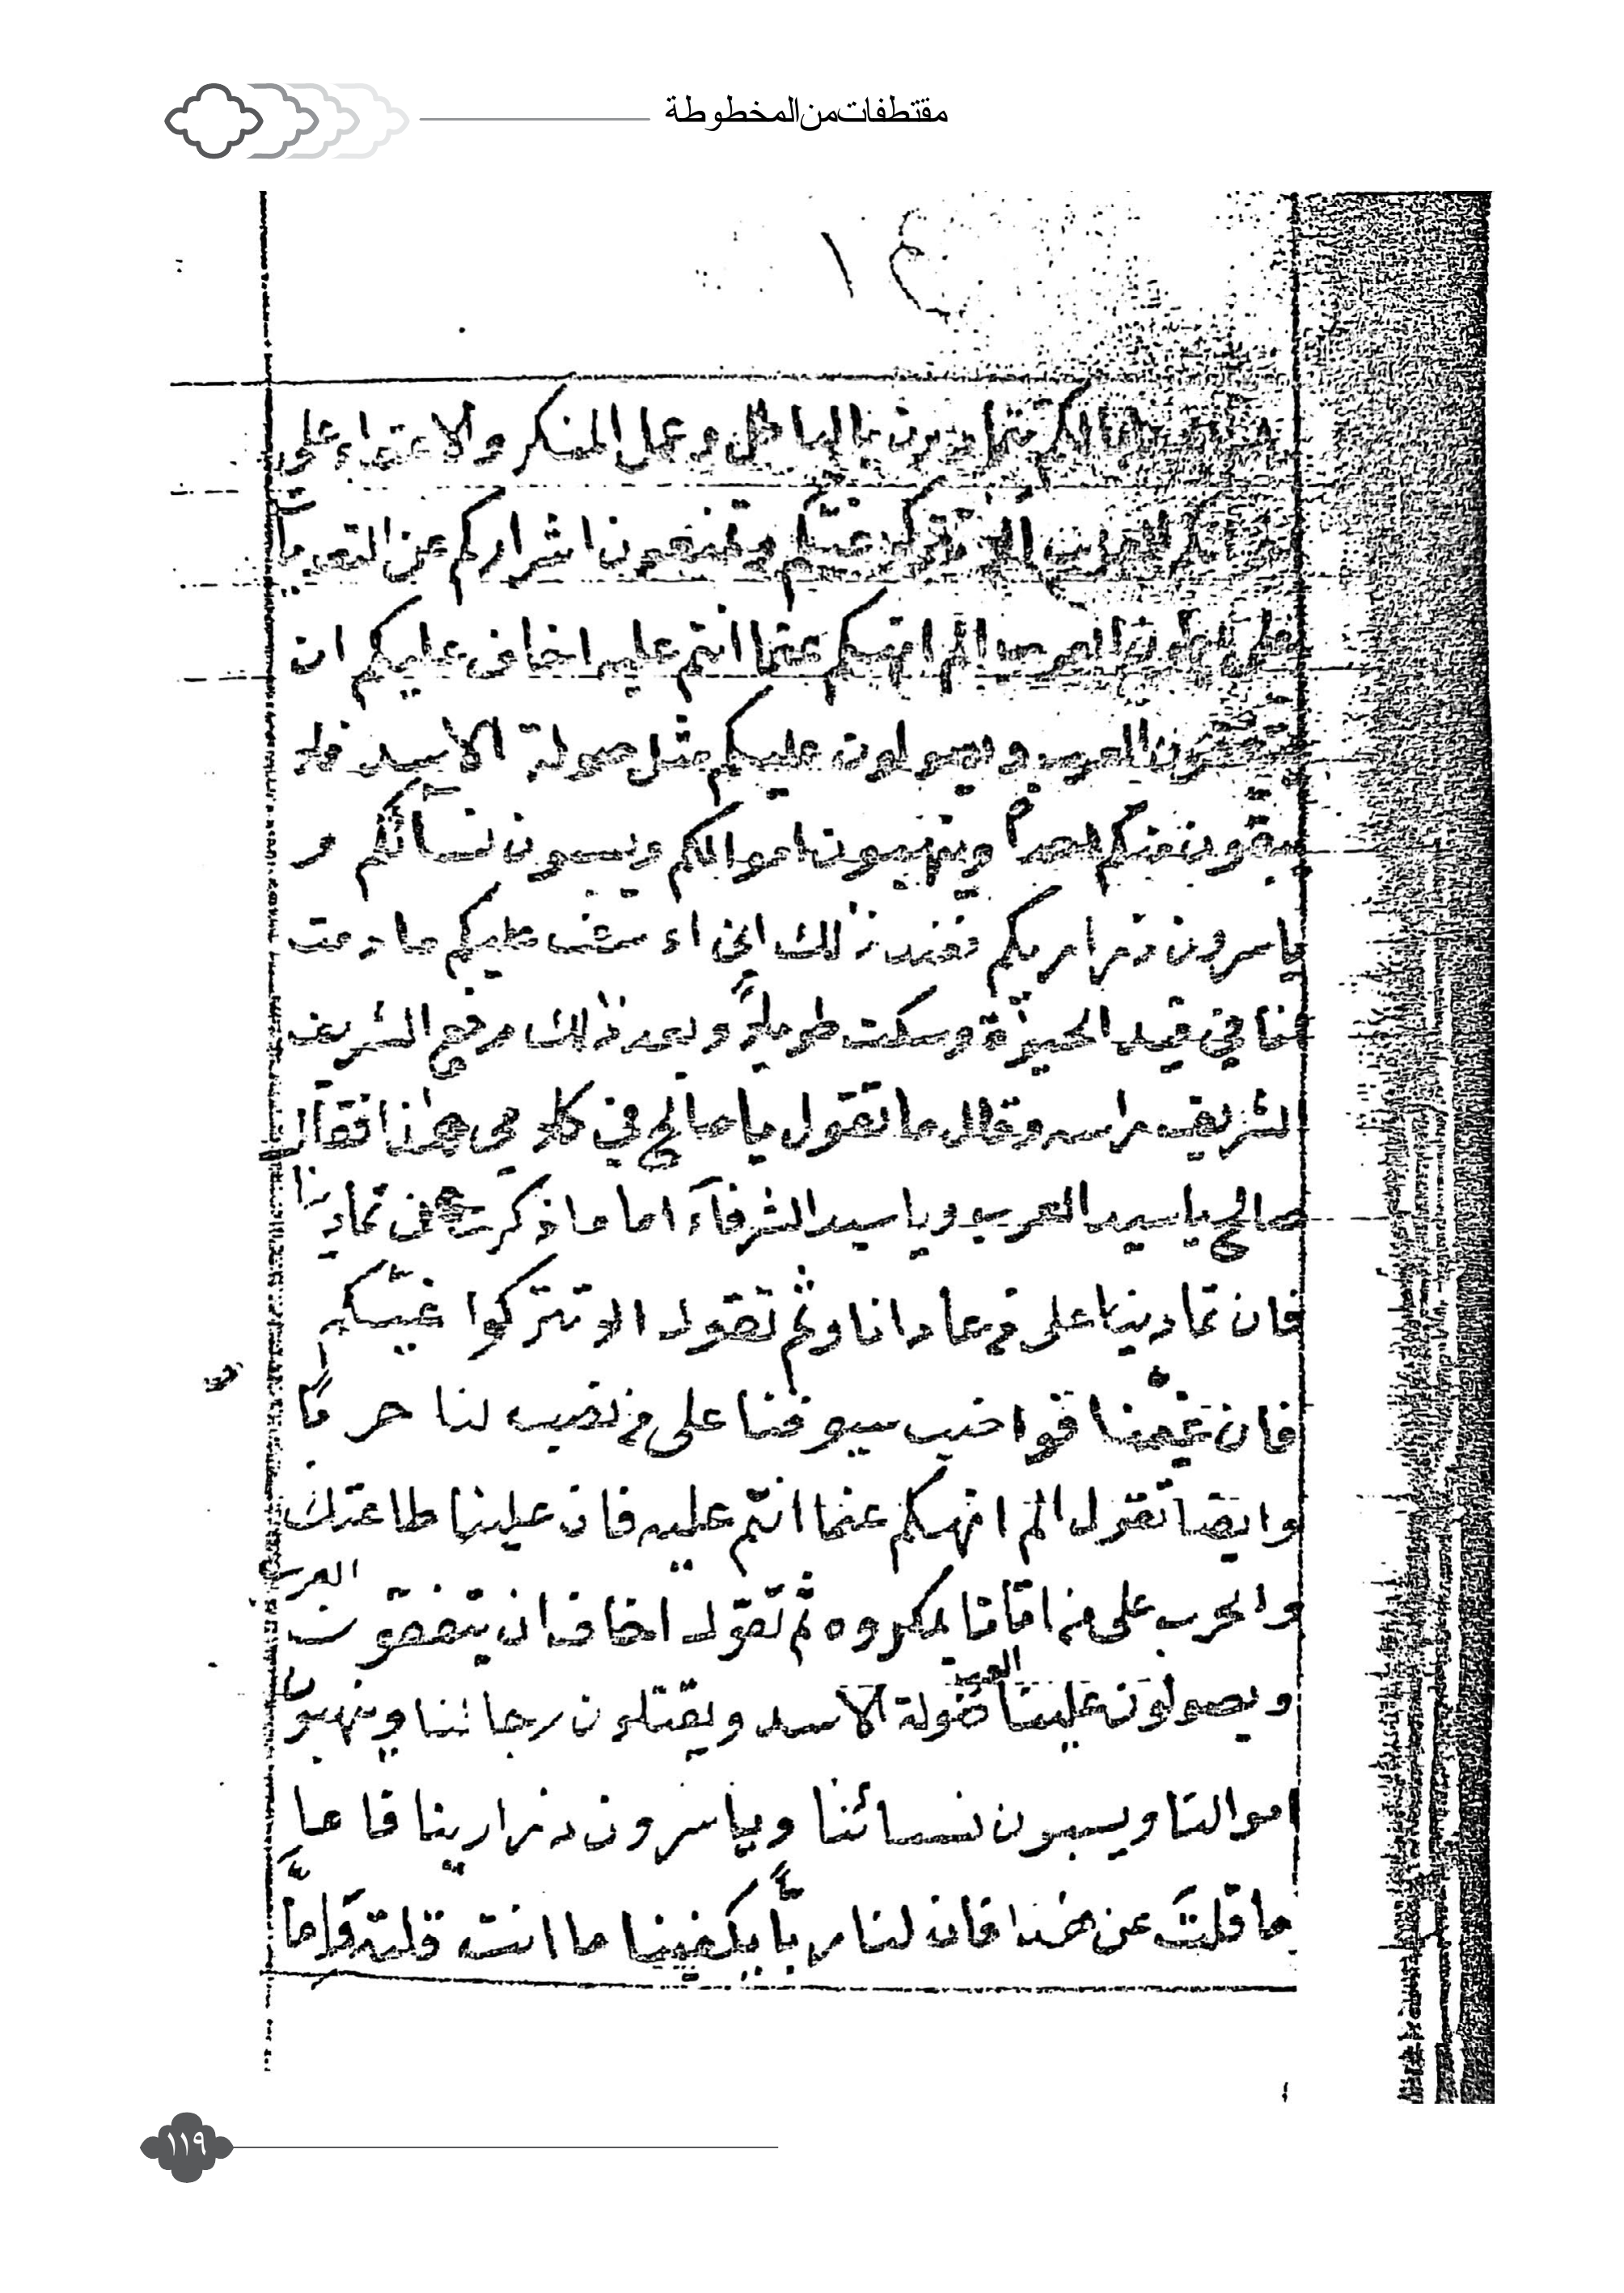 مقتطفات من المخطوطة
١٤
مالكم تتمادون بالباطل وعمل المنكر والاعتداء على
غيّكم وتمنعون اشراركم عن التعدي
العرب الم انهيكم عنما انتم عليه اخاف عليكم ان
العرب ويصولون عليكم مثل صولة الاسد فلا
يبقون منكم احداً وينهبون اموالكم ويسبون نسآئكم و
ياسرون ذراريكم فعند ذلك عليكم ما دمت
انا في قيد الحيوٰة وسكت طويلاً وبعد ذلك رفع الشريف
الشريف راسه وقال ما تقول يا صالح في كلامي هٰذا فقال
صالح يا سيد العرب ويا سيد الشرفآء اما ما ذكرت من تمادينا
فان تمادينا على من عادانا وثم تقول الا تتركوا غيّكم
فان غيّنا قواضب سيوفنا على من نصب لنا حرباً
وايضا تقول الم انهيكم عنما انتم عليه فان علينا طاعتك
والحرب على من اتانا بمكروه ثم تقول اخاف ان يتفقون العرب
ويصولون علينا العرب صولة الاسد ويقتلون رجالنا وينهبون
اموالنا ويسبون نسائنا وياسرون ذرارينا فاما
ما قلت عن هذا فان لنا ربّاً يكفينا ما انت قلته وامّا
١١٩